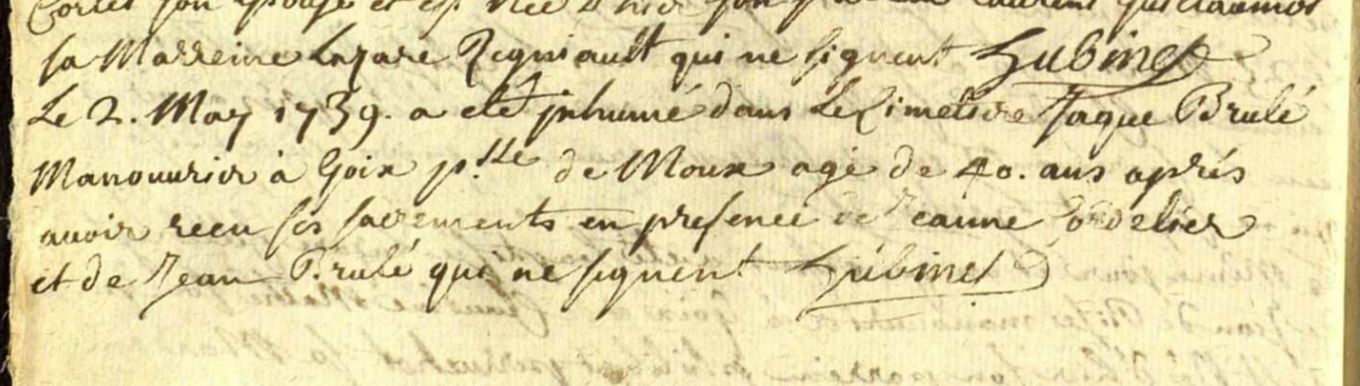 son Epouse et est née d'hier son
sa Marreine Lazare Regniault qui ne signent Gubinet
Le 2. May 1739. a eté jnhumé dans le Cimetiere Jaque Brulé
Manouurier à Goix p.sse de Moux agé de 40. ans aprés
auoir receu ses sacrements en presence de Jeanne Cordelier
et de Jean Brulé qui ne signent Gubinet